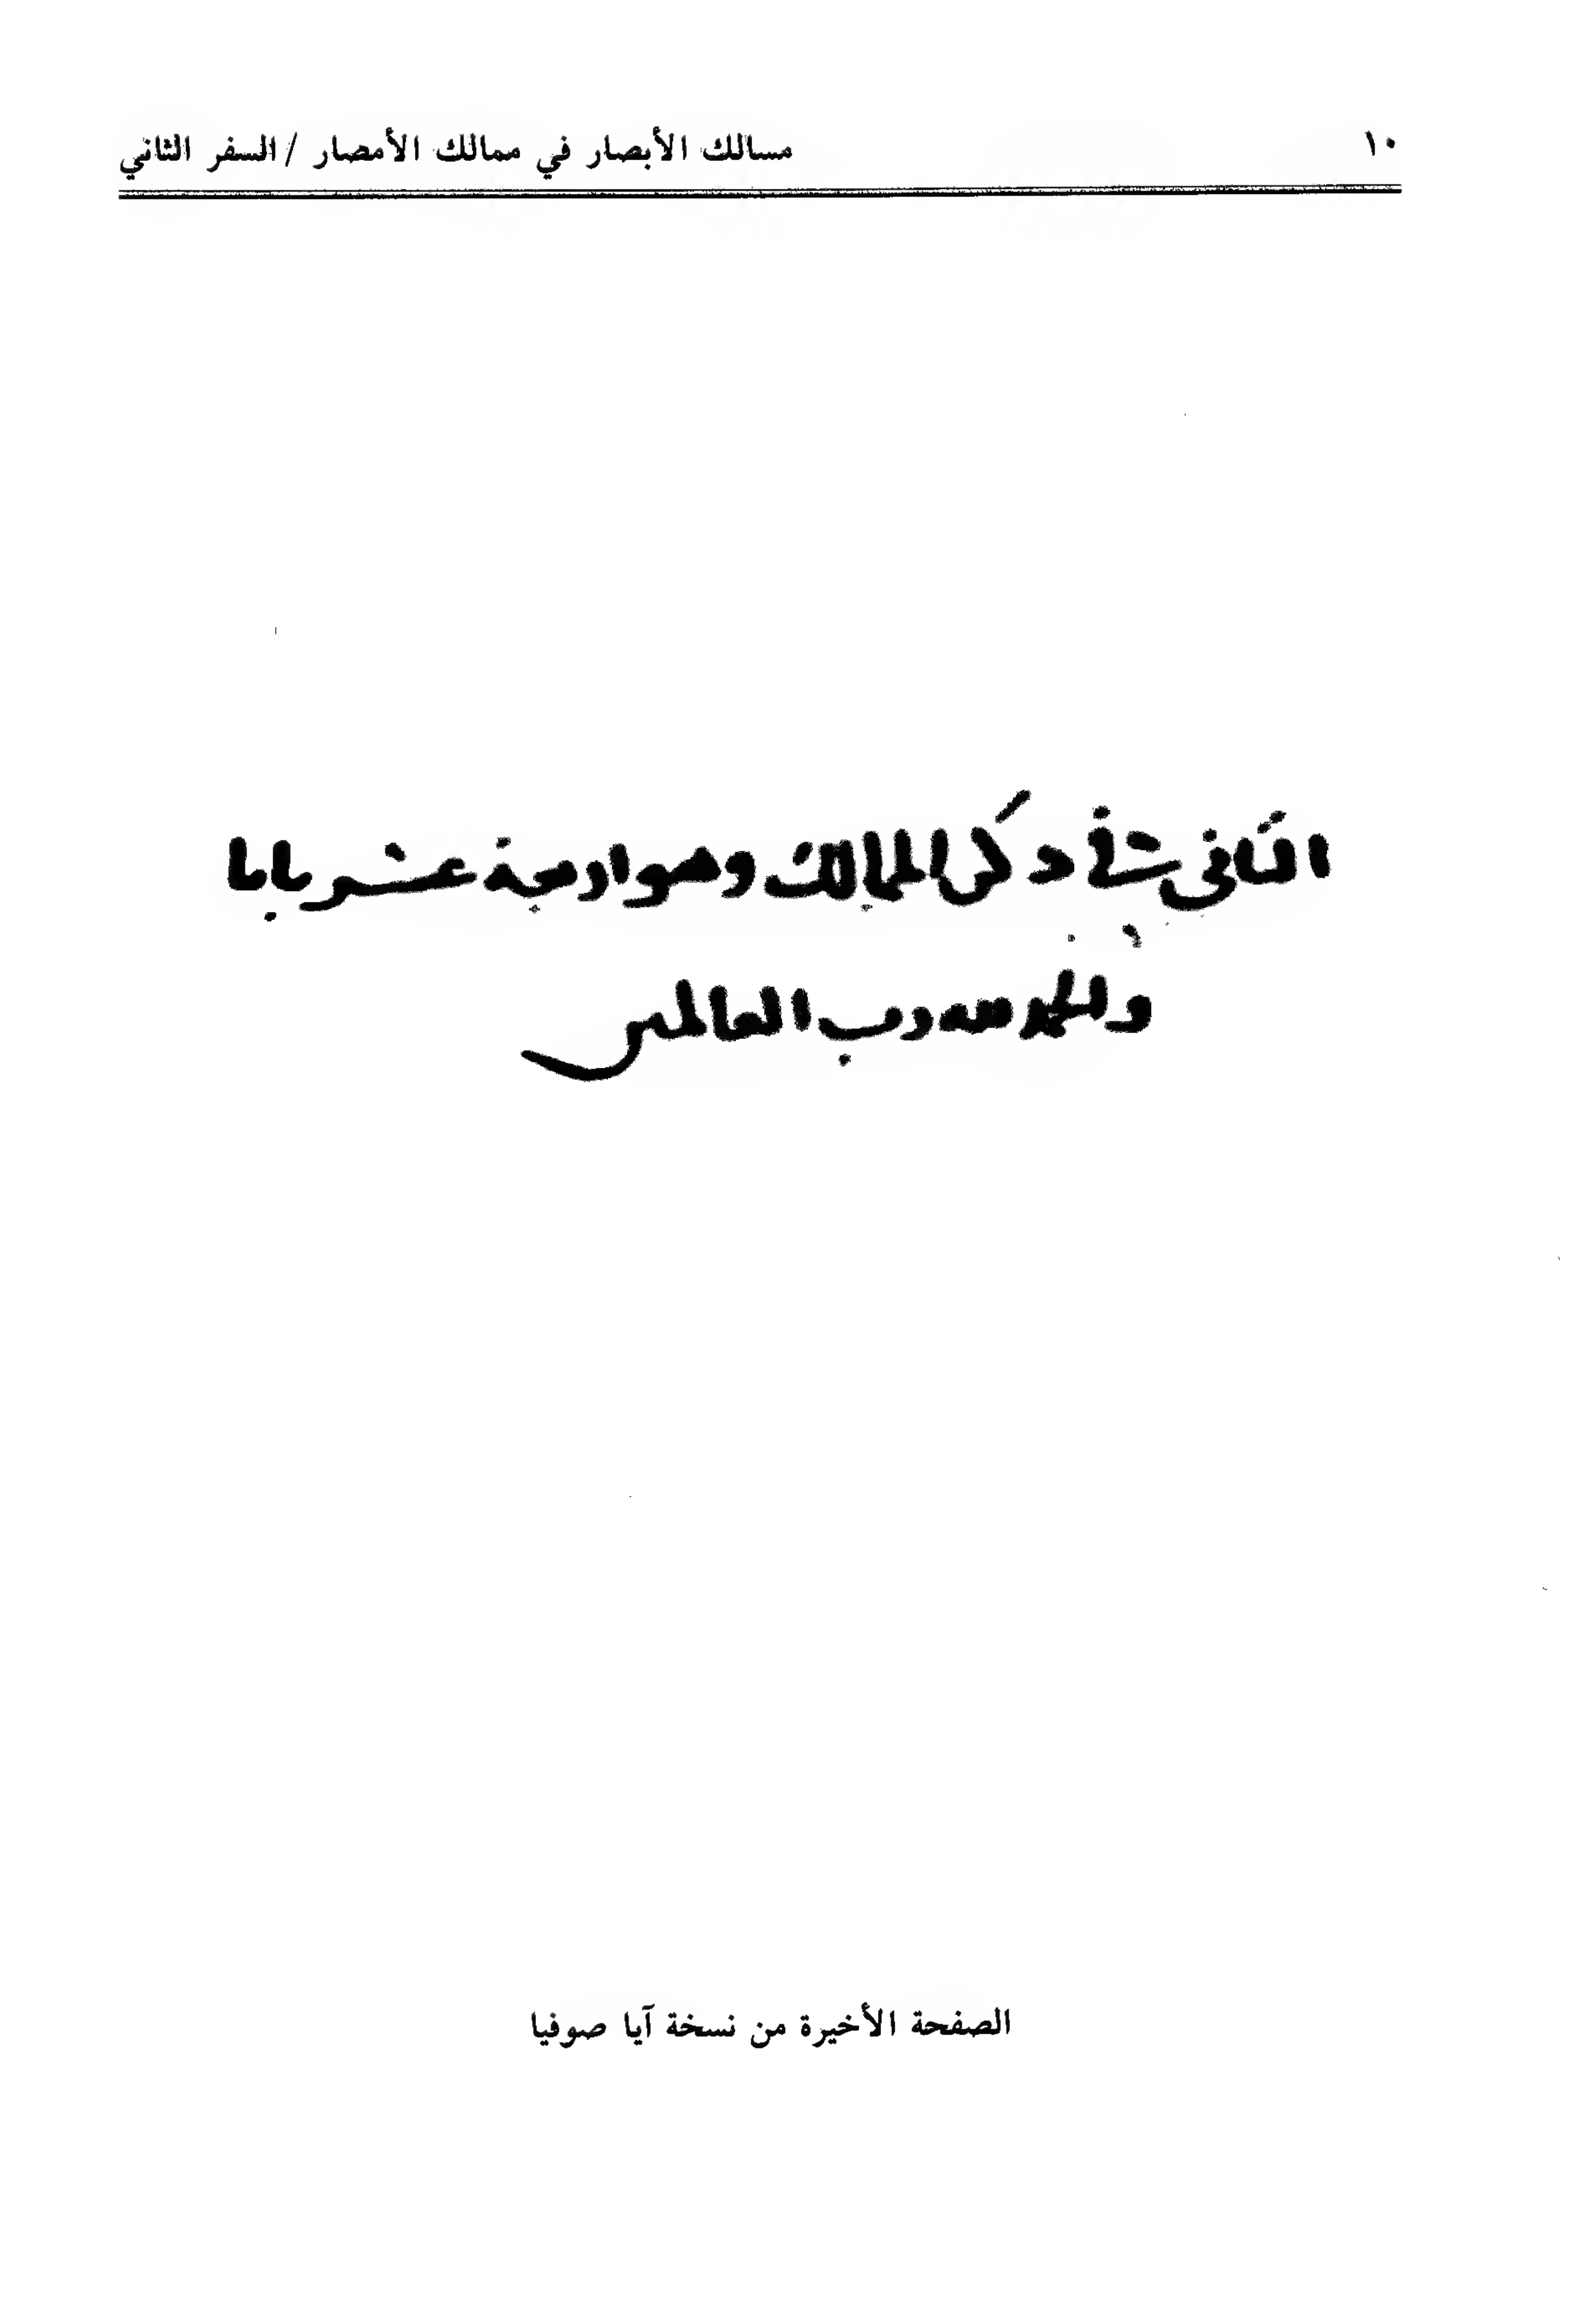 ١٠
مسالك الأبصار في ممالك الأمصار / السفر الثاني
الثاني في ذكر الممالك وهو اربعة عشر بابا
والحمد لله رب العالمين
الصفحة الأخيرة من نسخة آيا صوفيا